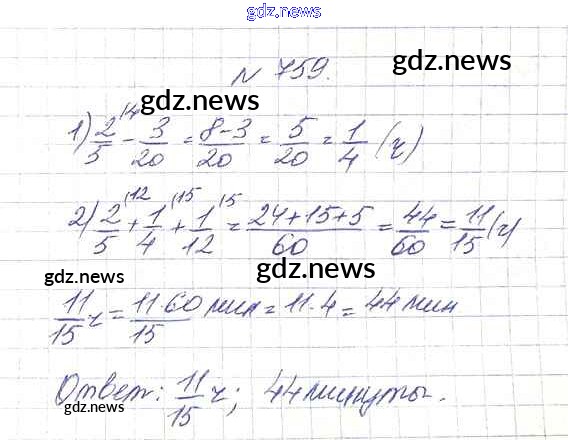 gdz.news
N 759.
gdz.news
gdz.news
1) 2/5 \4 - 3/20 = 8-3/20 = 5/20 = 1/4 (ч)
2) 2/5 \12 + 1/4 \15 + 1/12 \5 = 24+15+5/60 = 44/60 = 11/15 (ч)
gdz.news
gdz.news
11/15 ч = 11·60/15 мин = 11·4 = 44 мин
gdz.news
gdz.news
Ответ: 11/15 ч; 44 минуты.
gdz.news